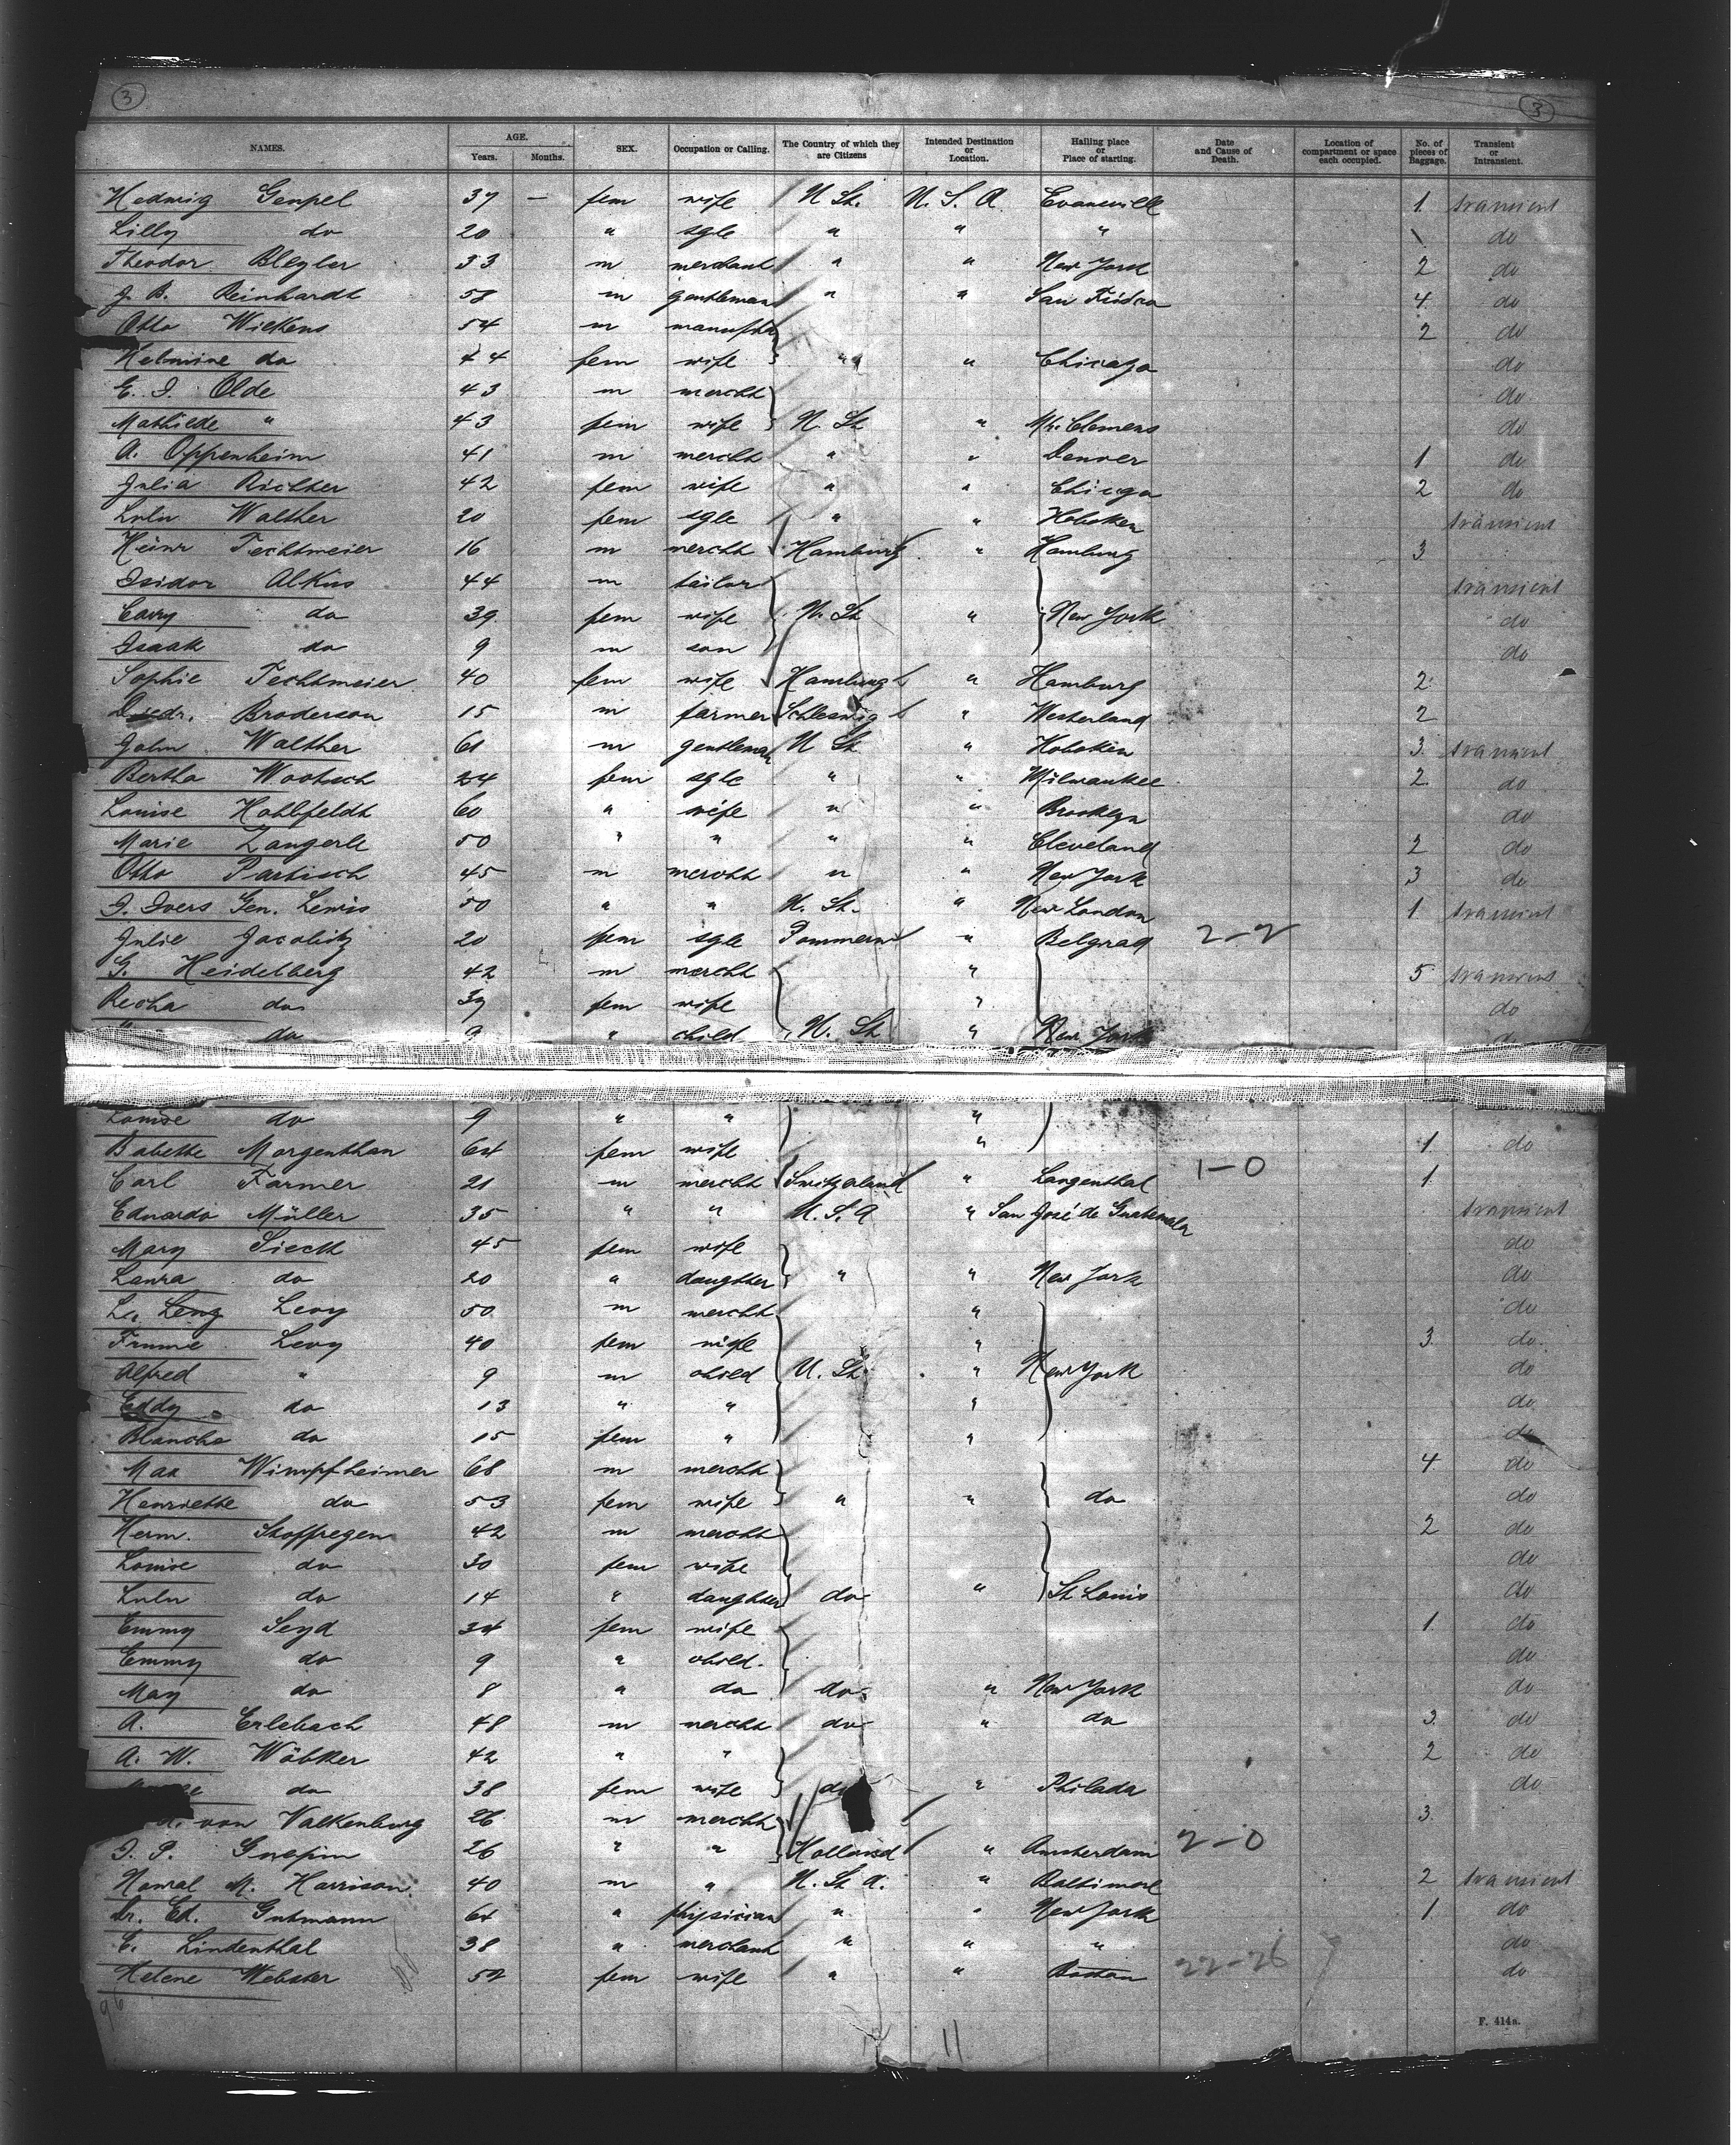 3 3
NAMES. AGE. Years. Months. SEX. Occupation or Calling. The Country of which they are Citizens Intended Destination or Location. Hailing place or Place of starting. Date and Cause of Death. Location of compartment or space each occupied. No. of pieces of Baggage. Transient or Intransient.
Hedwig Gempel 37 — fem wife U St. U. S. A Evansville 1 transient
Lilly do 20 " sgle " " " \ do
Theodor Blegler 33 m merchant " " New York 2 do
J. B. Reinhardt 58 m gentleman " " San Frisco 4 do
Otto Wickens 54 m 2 do
Helmine do 44 fem wife " " Chicago do
E. J. Olde 43 m mercht do
Mathilde " 43 fem wife U. St " Mt. Clemens do
A. Oppenheim 41 m mercht " " Denver 1 do
Julia Richter 42 fem wife " " Chicgo 2 do
Lulu Walther 20 fem sgle " " Hoboken transient
Heinr Techtmeier 16 m mercht Hamburg " Hamburg 3
Isidor Alkus 44 m tailor transient
Carry do 39 fem wife U. St " New York do
Isaak do 9 m son do
Sophie Techtmeier 40 fem wife Hamburg " Hamburg 2
Diedr. Broderson 15 m farmer Schleswig " Westerland 2
John Walther 61 m gentleman U St " Hoboken 3 transient
Bertha Wootsch 24 fem sgle " " Milwaukee 2 do
Louise Hohlfeldt 60 " wife " " Brooklyn do
Marie Zangerle 50 " " " " Cleveland 2 do
Otto Partisch 45 m mercht " " New York 3 do
J. Ivers Gen. Lewis 50 " " U. St. " New London 1 transient
Julie Jacobitz 20 fem sgle Pommern " Belgrad 2-2
G. Heidelberg 42 m mercht " 5 transient
Recha do 37 fem wife " do
" do 9 " child U. St " New York do
Louise do 9 " " "
Babette Morgenthau 64 fem wife " 1 do
Carl Farmer 21 m mercht Switzerland " Langenthal 1-0 1
Eduardo Müller 35 " " U. S. A " San José de Guatemala transient
Mary Sieck 45 fem wife do
Laura do 20 " daugther " " New York do
Levy 50 m mercht " do
Levy 40 fem wife " 3 do
Alfred " 9 m child U. St " New York do
Eddy do 13 " " " do
Blanche do 15 fem " " do
Max Wimpfheimer 68 m mercht 4 do
Henriette do 53 fem wife " " do do
Herm. Stoffregen 42 m mercht 2 do
Louise do 30 fem wife do
Lulu do 14 " daughter do " St Louis do
Emmy Seyd 34 fem wife 1 do
Emmy do 9 " child. do
May do 8 " do do " New York do
A. Erlebach 48 m mercht do " do 3 do
A. W. Wöbker 42 " " 2 do
do 38 fem wife do " Philada do
von Valkenburg 26 m mercht 3
J. P. 26 " " Holland " Amsterdam 2-0
M. Harrison 40 m " U. St A. " Baltimore 2 transient
Dr. Ed. Gutmann 64 " physician " " New York 1 do
E. Lindenthal 38 " merchant " " " do
Helene Webster 52 fem wife " " Boston 22-26 do
96
11
F. 414a.